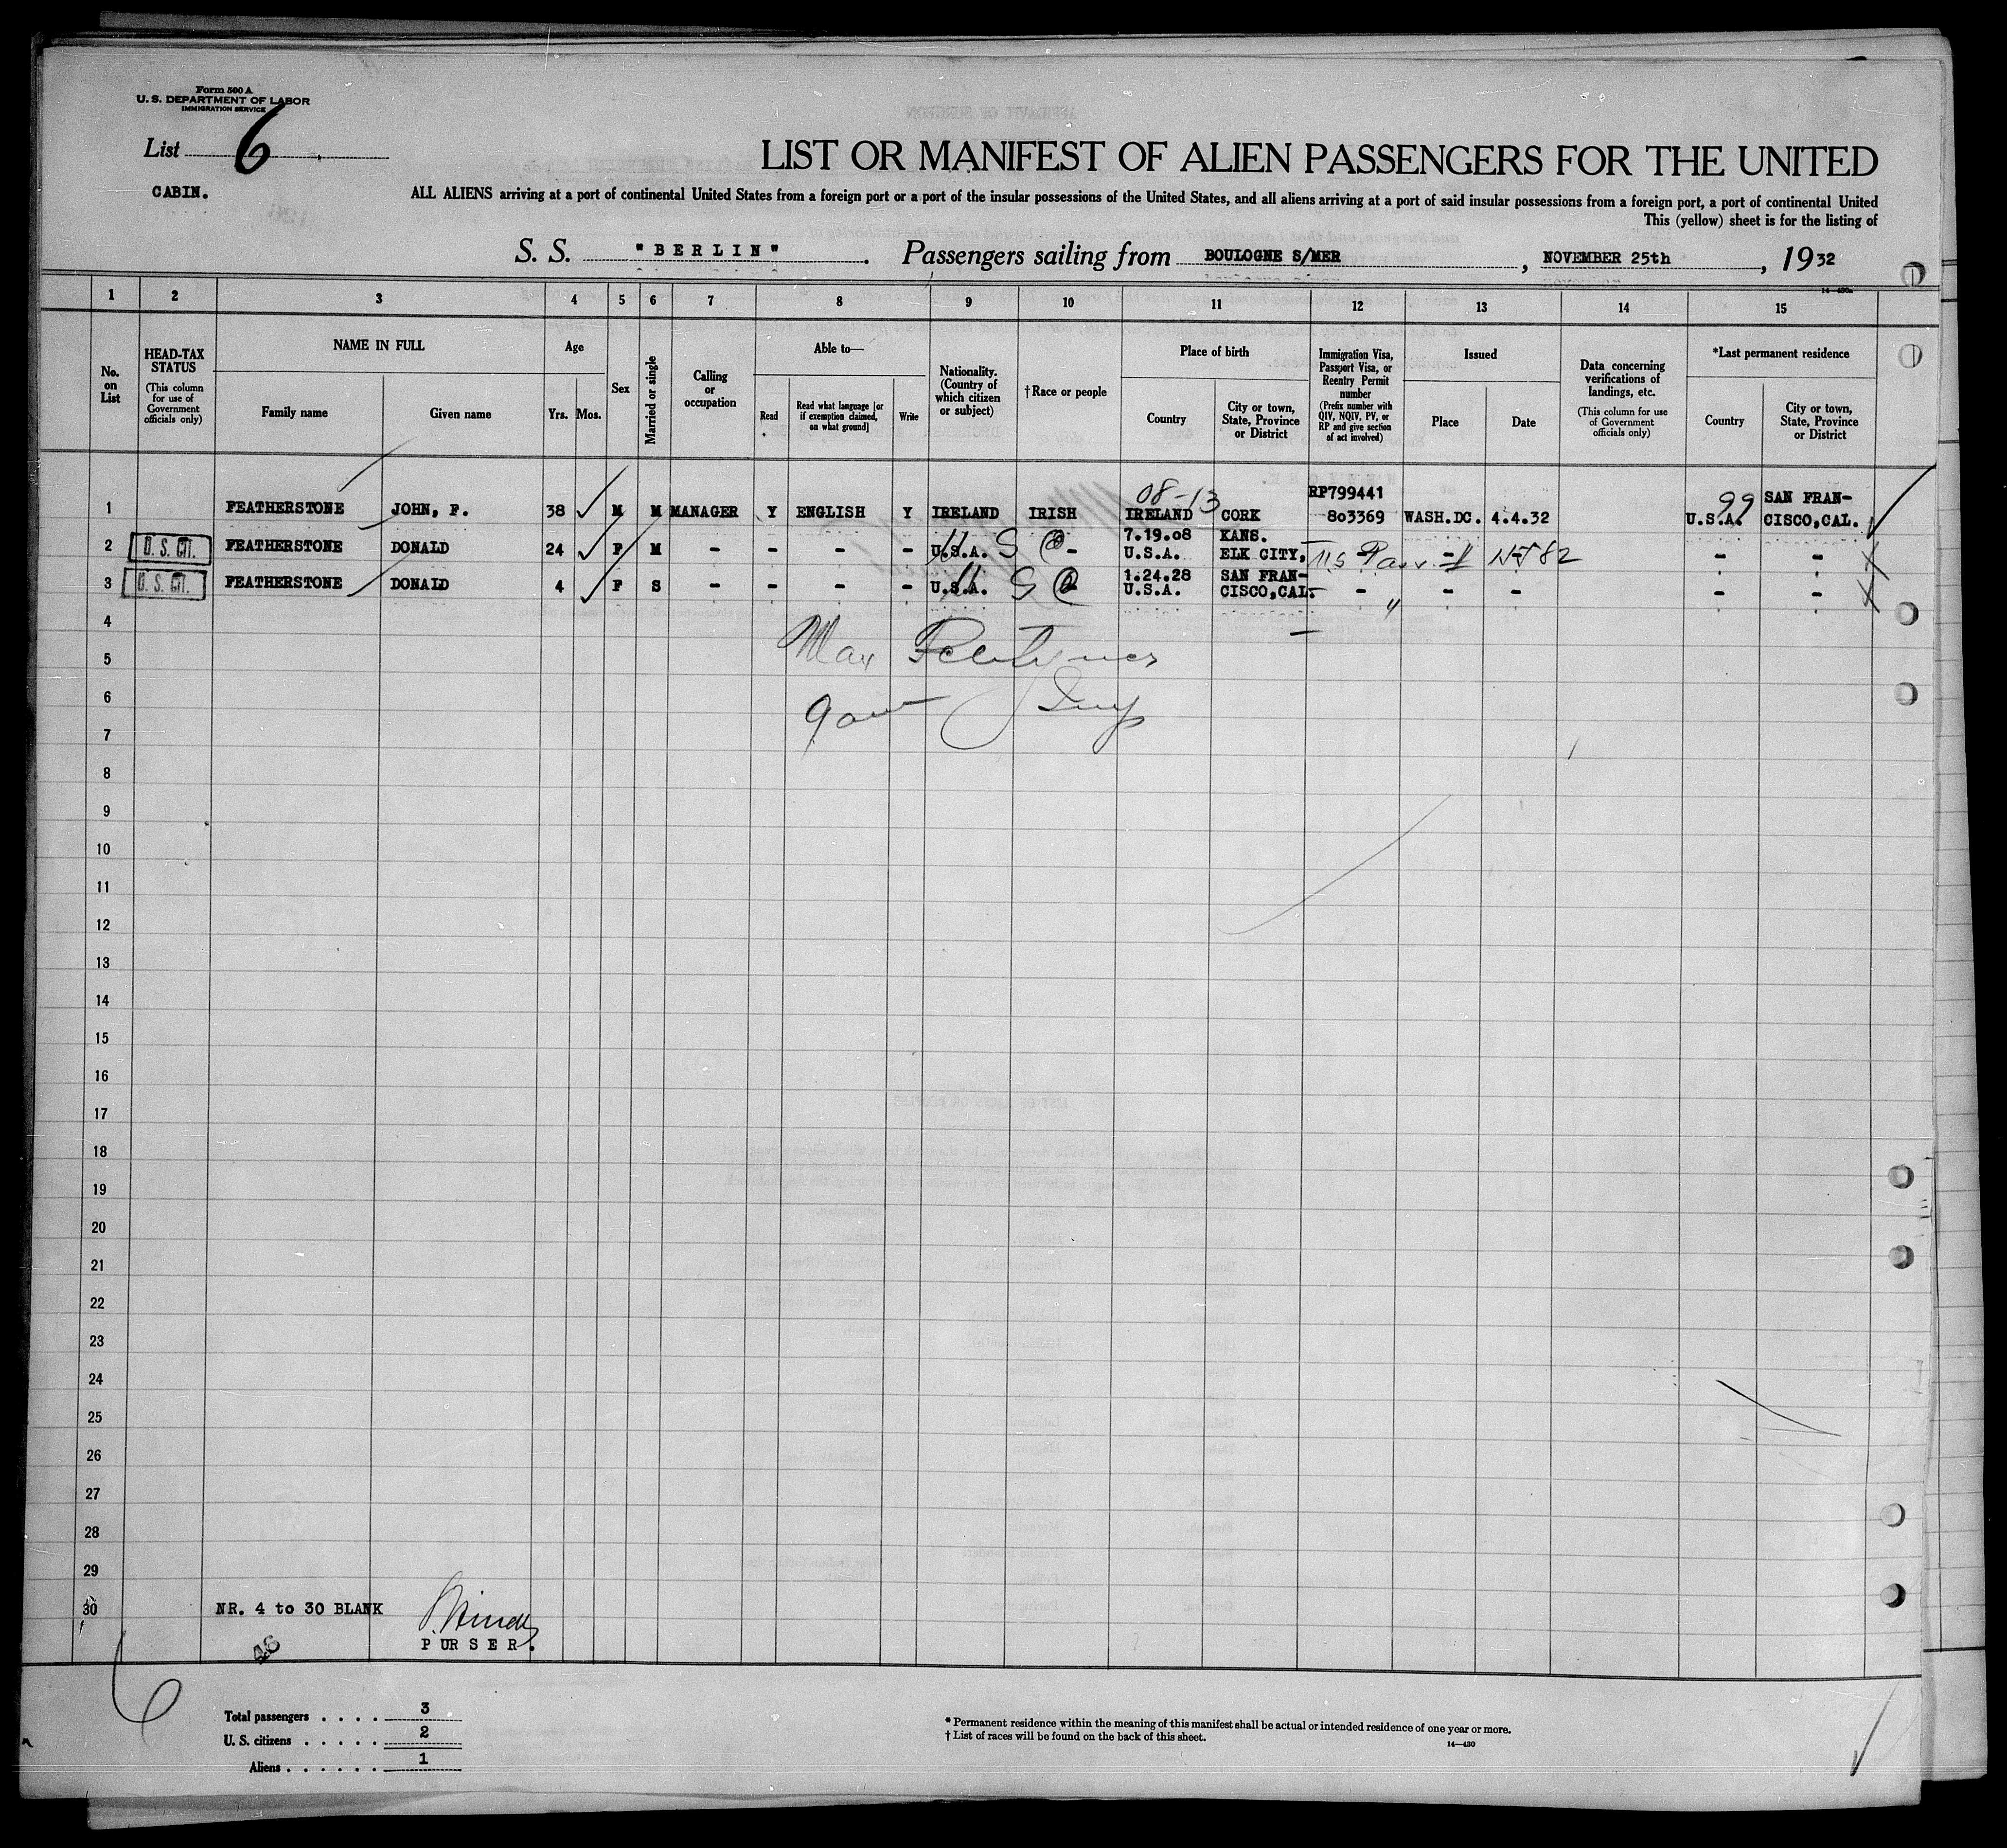 Form 500 A
U. S. DEPARTMENT OF LABOR
IMMIGRATION SERVICE
List 6
CABIN.
LIST OR MANIFEST OF ALIEN PASSENGERS FOR THE UNITED
ALL ALIENS arriving at a port of continental United States from a foreign port or a port of the insular possessions of the United States, and all aliens arriving at a port of said insular possessions from a foreign port, a port of continental United
This (yellow) sheet is for the listing of
S. S. "BERLIN". Passengers sailing from BOULOGNE S/MER, NOVEMBER 25th, 1932
14—430a
1 2 3 4 5 6 7 8 9 10 11 12 13 14 15
No. on List
HEAD-TAX STATUS
(This column for use of Government officials only)
NAME IN FULL
Family name
Given name
Age
Yrs.
Mos.
Sex
Married or single
Calling or occupation
Able to—
Read
Read what language [or if exemption claimed, on what ground]
Write
Nationality. (Country of which citizen or subject)
† Race or people
Place of birth
Country
City or town, State, Province or District
Immigration Visa, Passport Visa, or Reentry Permit number
(Prefix number with QIV, NQIV, PV, or RP and give section of act involved)
Issued
Place
Date
Data concerning verifications of landings, etc.
(This column for use of Government officials only)
*Last permanent residence
Country
City or town, State, Province or District
08-13 RP799441 99 SAN FRAN-
1 FEATHERSTONE JOHN, F. 38 M M MANAGER Y ENGLISH Y IRELAND IRISH IRELAND CORK 803369 WASH.DC. 4.4.32 U.S.A. CISCO,CAL.
7.19.08 KANS.
2 U.S. CIT. FEATHERSTONE DONALD 24 F M - - - - U.S.A. - U.S.A. ELK CITY, US Pass. - -
1.24.28 SAN FRAN-
3 U.S. CIT. FEATHERSTONE DONALD 4 F S - - - - U.S.A. - U.S.A. CISCO,CAL. - - - - -
4
5
6
7
8
9
10
11
12
13
14
15
16
17
18
19
20
21
22
23
24
25
26
27
28
29
30 NR. 4 to 30 BLANK
PURSER.
46
6
Total passengers . . . . 3
U. S. citizens . . . . . 2
Aliens . . . . . . 1
* Permanent residence within the meaning of this manifest shall be actual or intended residence of one year or more.
† List of races will be found on the back of this sheet.
14—430